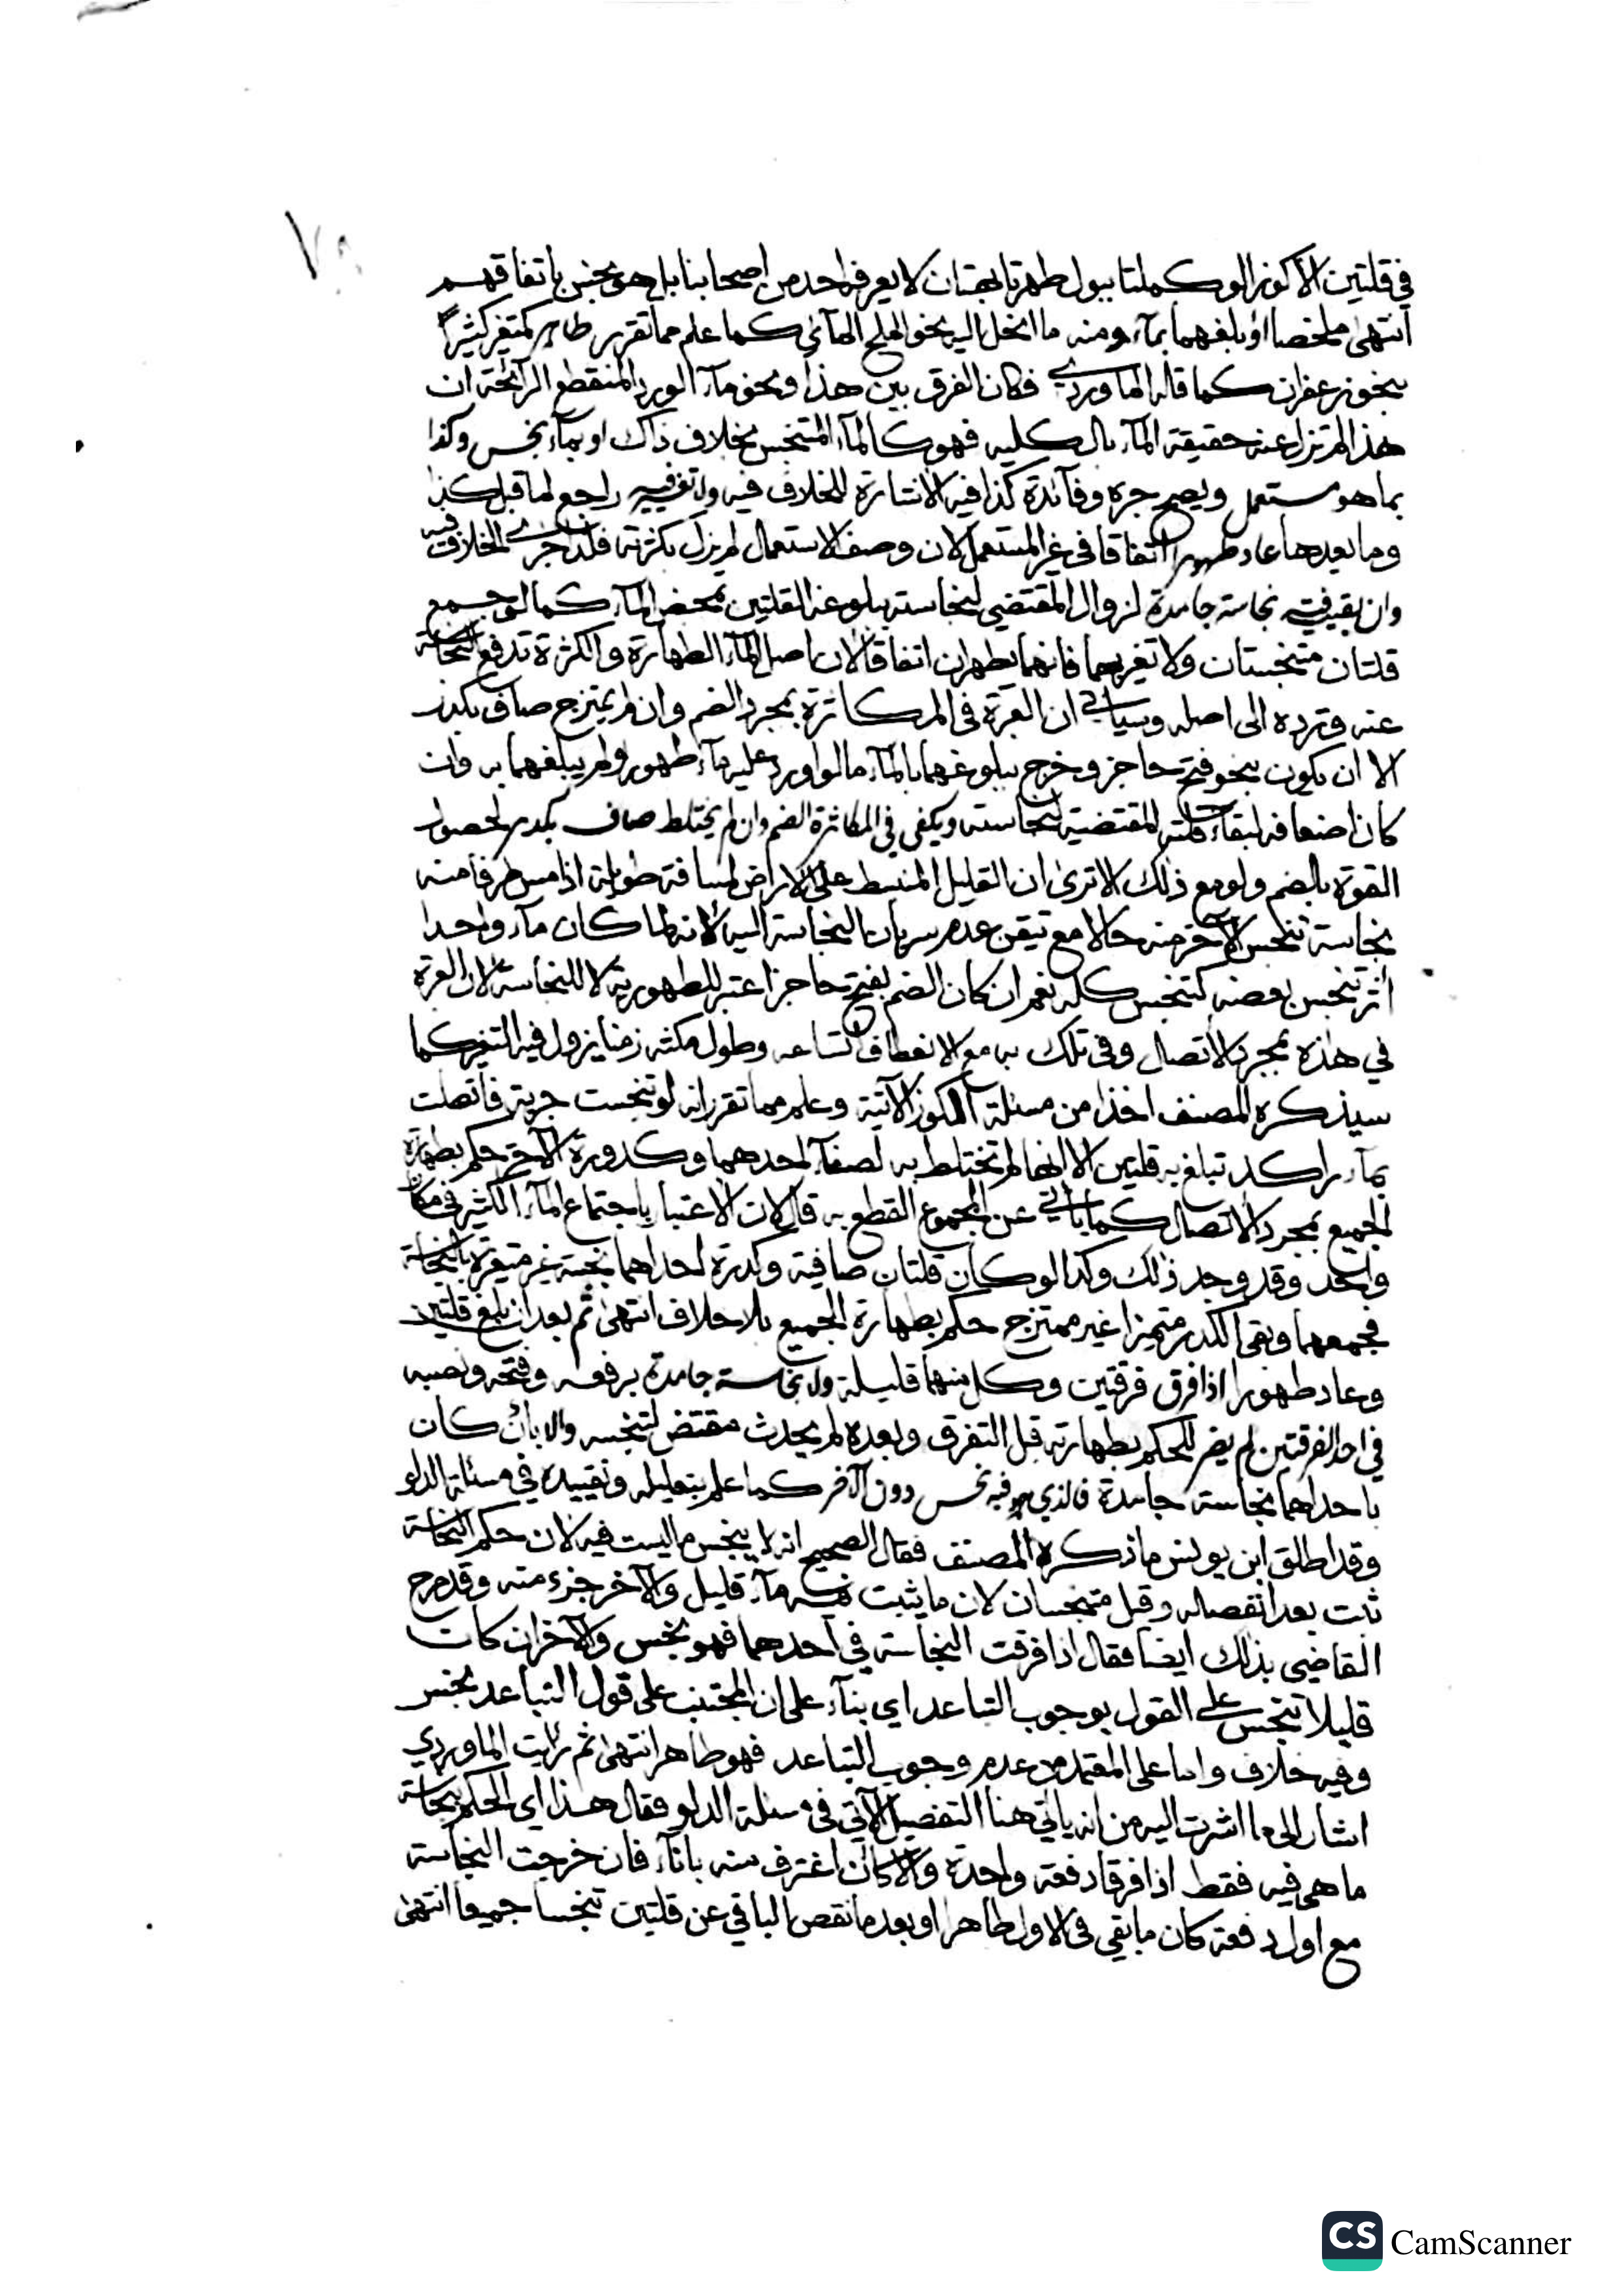 في قلتين الا كوزا لو كملتا ببول طهرتا بهتان لا يعرفه احد من اصحابنا بل هو نجس باتفاقهم
انتهى ملخصا او بلغهما بماء ومنه ما انحل اليه نحو الملح المائي كما علم مما تقرر طاهر كمتغير كثيرا
بنحو زعفران كما قاله الماوردي فكان الفرق بين هذا ونحو ماء الورد المنقطع الرائحة ان
هذا لم تزل عنه حقيقة الماء بالكليه فهو كالماء المتنجس بخلاف ذاك او بماء نجس وكذا
بما هو مستعمل ويصح جره وفائدة كذا فيه الاشارة للخلاف فيه ولا تغير فيه راجع لما قبل كذا
وما بعدها عاد طهورا اتفاقا في غير المستعمل لان وصف الاستعمال لم يزل بكثرته فلذا جرى الخلاف فيه
وان بقيت فيه نجاسة جامدة لزوال المقتضي لنجاسته ببلوغه القلتين بمحض الماء كما لو جمع
قلتان متنجستان ولا تغير بهما فانهما يطهران اتفاقا لان اصل الماء الطهارة والكثرة تدفع النجاسة
عنه وترده الى اصله وسياتي ان العبرة في المكاثرة بمجرد الضم وان لم يمتزج صاف بكدر
الا ان يكون بنحو فتح حاجز وخرج ببلوغهما بالماء ما لو اورد عليه ماء طهور ولم يبلغهما به وان
كان اضعافه لبقاء قلته المقتضية لنجاسته ويكفي في المكاثرة الضم وان لم يختلط صاف بكدر لحصول
القوة بالضم ولو مع ذلك الا ترى ان القليل المنبسط على الارض لمسافة طويلة اذا مس طرفا منه
نجاسة تنجس الاخر منه حالا مع تيقن عدم سريان النجاسة اليه لانه لما كان ماء واحدا
اثر تنجس بعضه كتنجس كله نعم ان كان الضم بفتح حاجز اعتبر للطهورية لا للنجاسة لان العبرة
في هذه بمجرد الاتصال وفي تلك به مع الانعطاف اتساعه وطول مكثه زمنا يزول فيه التغير كما
سيذكره المصنف اخذا من مسئلة الكوز الآتية وعلم مما تقرر انه لو تنجست جرية فاتصلت
بماء راكد تبلغ به قلتين الا انها لم تختلط به لصفاء احدهما وكدورة الآخر حكم بطهارة
الجميع بمجرد الاتصال كما ياتي عن المجموع القطع به قال لان الاعتبار باجتماع الماء الكثير في مكان
واحد وقد وجد ذلك وكذا لو كان قلتان صافية وكدرة احداهما نجسة غير متغيرة بالنجاسة
فجمعهما وبقي الكدر متميزا غير ممتزج حكم بطهارة الجميع بلا خلاف انتهى ثم بعد ان بلغ قلتين
وعاد طهورا اذا فرق فرقتين وكل منهما قليلة ولا نجاسة جامدة برفعه وفتحه ونصبه
في احد الفرقتين لم يضر للحكم بطهارته قبل التفرق وبعده لم يحدث مقتض لتنجسه والا بان كان
باحداهما نجاسة جامدة فالذي هو فيه نجس دون الآخر كما علم بتعليله وتقييده في مسئلة الدلو
وقد اطلق ابن يونس ما ذكره المصنف فقال الصحيح انه لا ينجس ما ليست فيه لان حكم النجاسة
ثبت بعد انفصاله وقيل متنجسان لان ما يثبت فيه ماء قليل والآخر جزء منه وقد صرح
القاضي بذلك ايضا فقال اذا فرقت النجاسة في احدهما فهو نجس والآخر ان كان
قليلا تنجس على القول بوجوب التباعد اي بناء على ان المجتنب على قول التباعد نجس
وفيه خلاف واما على المعتمد من عدم وجوب التباعد فهو طاهر انتهى ثم رايت الماوردي
اشار الى ما اشرت اليه من انه ياتي هنا التفصيل الآتي في مسئلة الدلو فقال هذا اي الحكم بنجاسة
ما هي فيه فقط اذا فرقا دفعة واحدة والا كان اغترف منه باناء فان خرجت النجاسة
مع اول دفعة كان ما بقي في الاول طاهرا او بعد ما نقص الباقي عن قلتين تنجسا جميعا انتهى
CS CamScanner